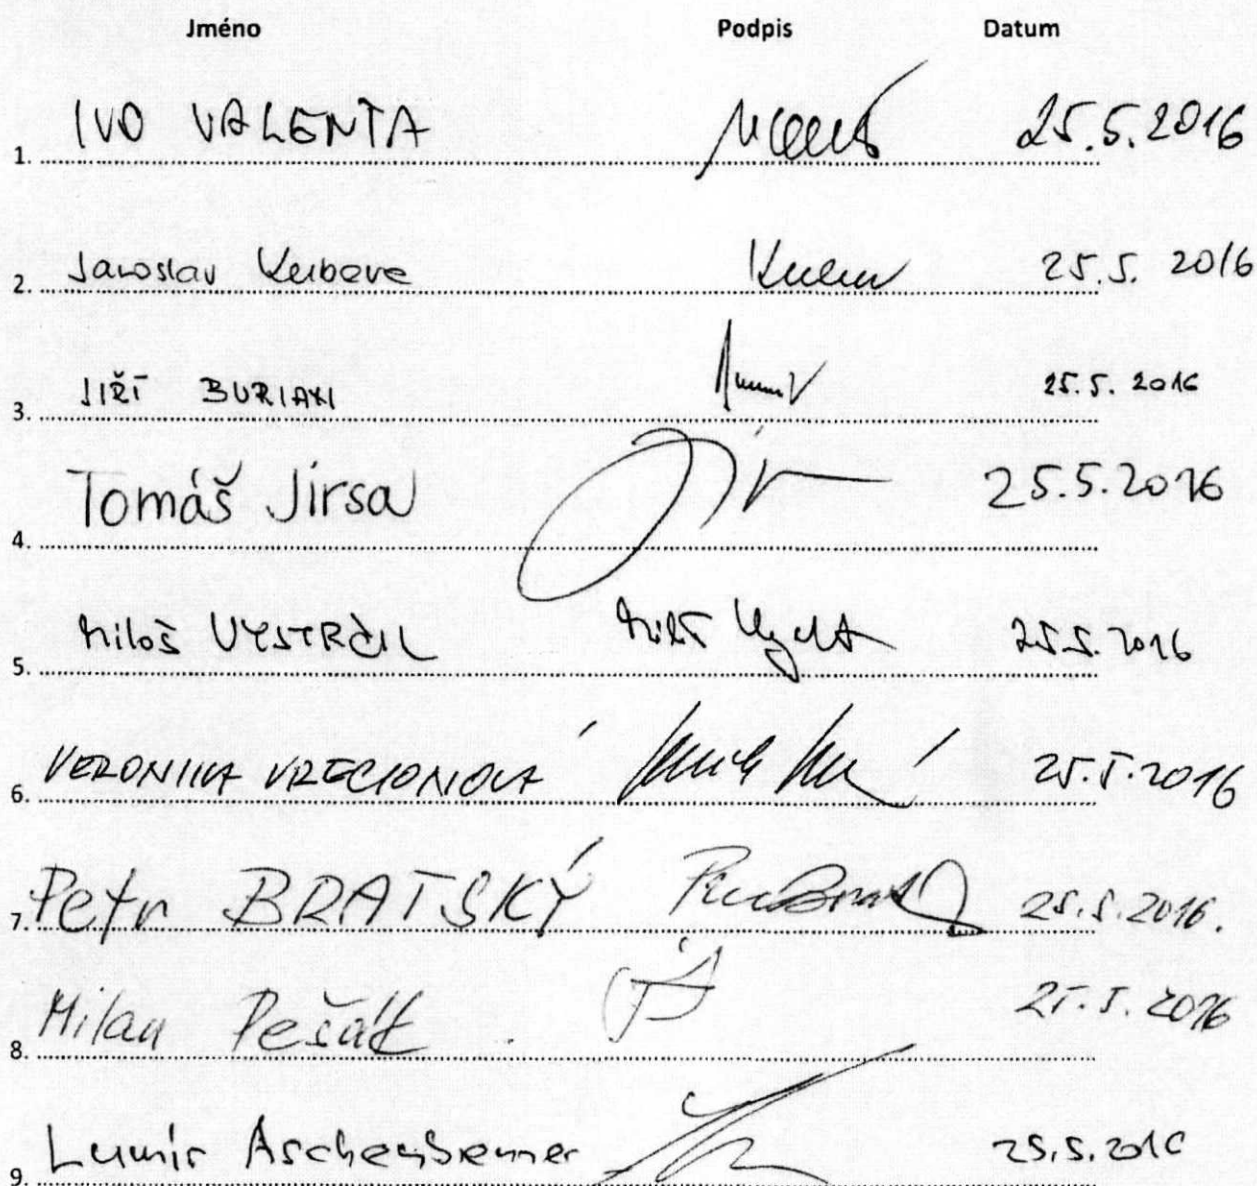 Jméno Podpis Datum
1. IVO VALENTA 25.5.2016
2. Jaroslav Kubera 25.5. 2016
3. JIŘÍ BURIAN 25.5. 2016
4. Tomáš Jirsa 25.5.2016
5. Miloš VYSTRČIL 25.5. 2016
6. VERONIKA VRECIONOVÁ 25.5.2016
7. Petr BRATSKÝ 25.5.2016.
8. Milan Pešák 25.5.2016
9. Lumír Aschenbrenner 25.5.2016